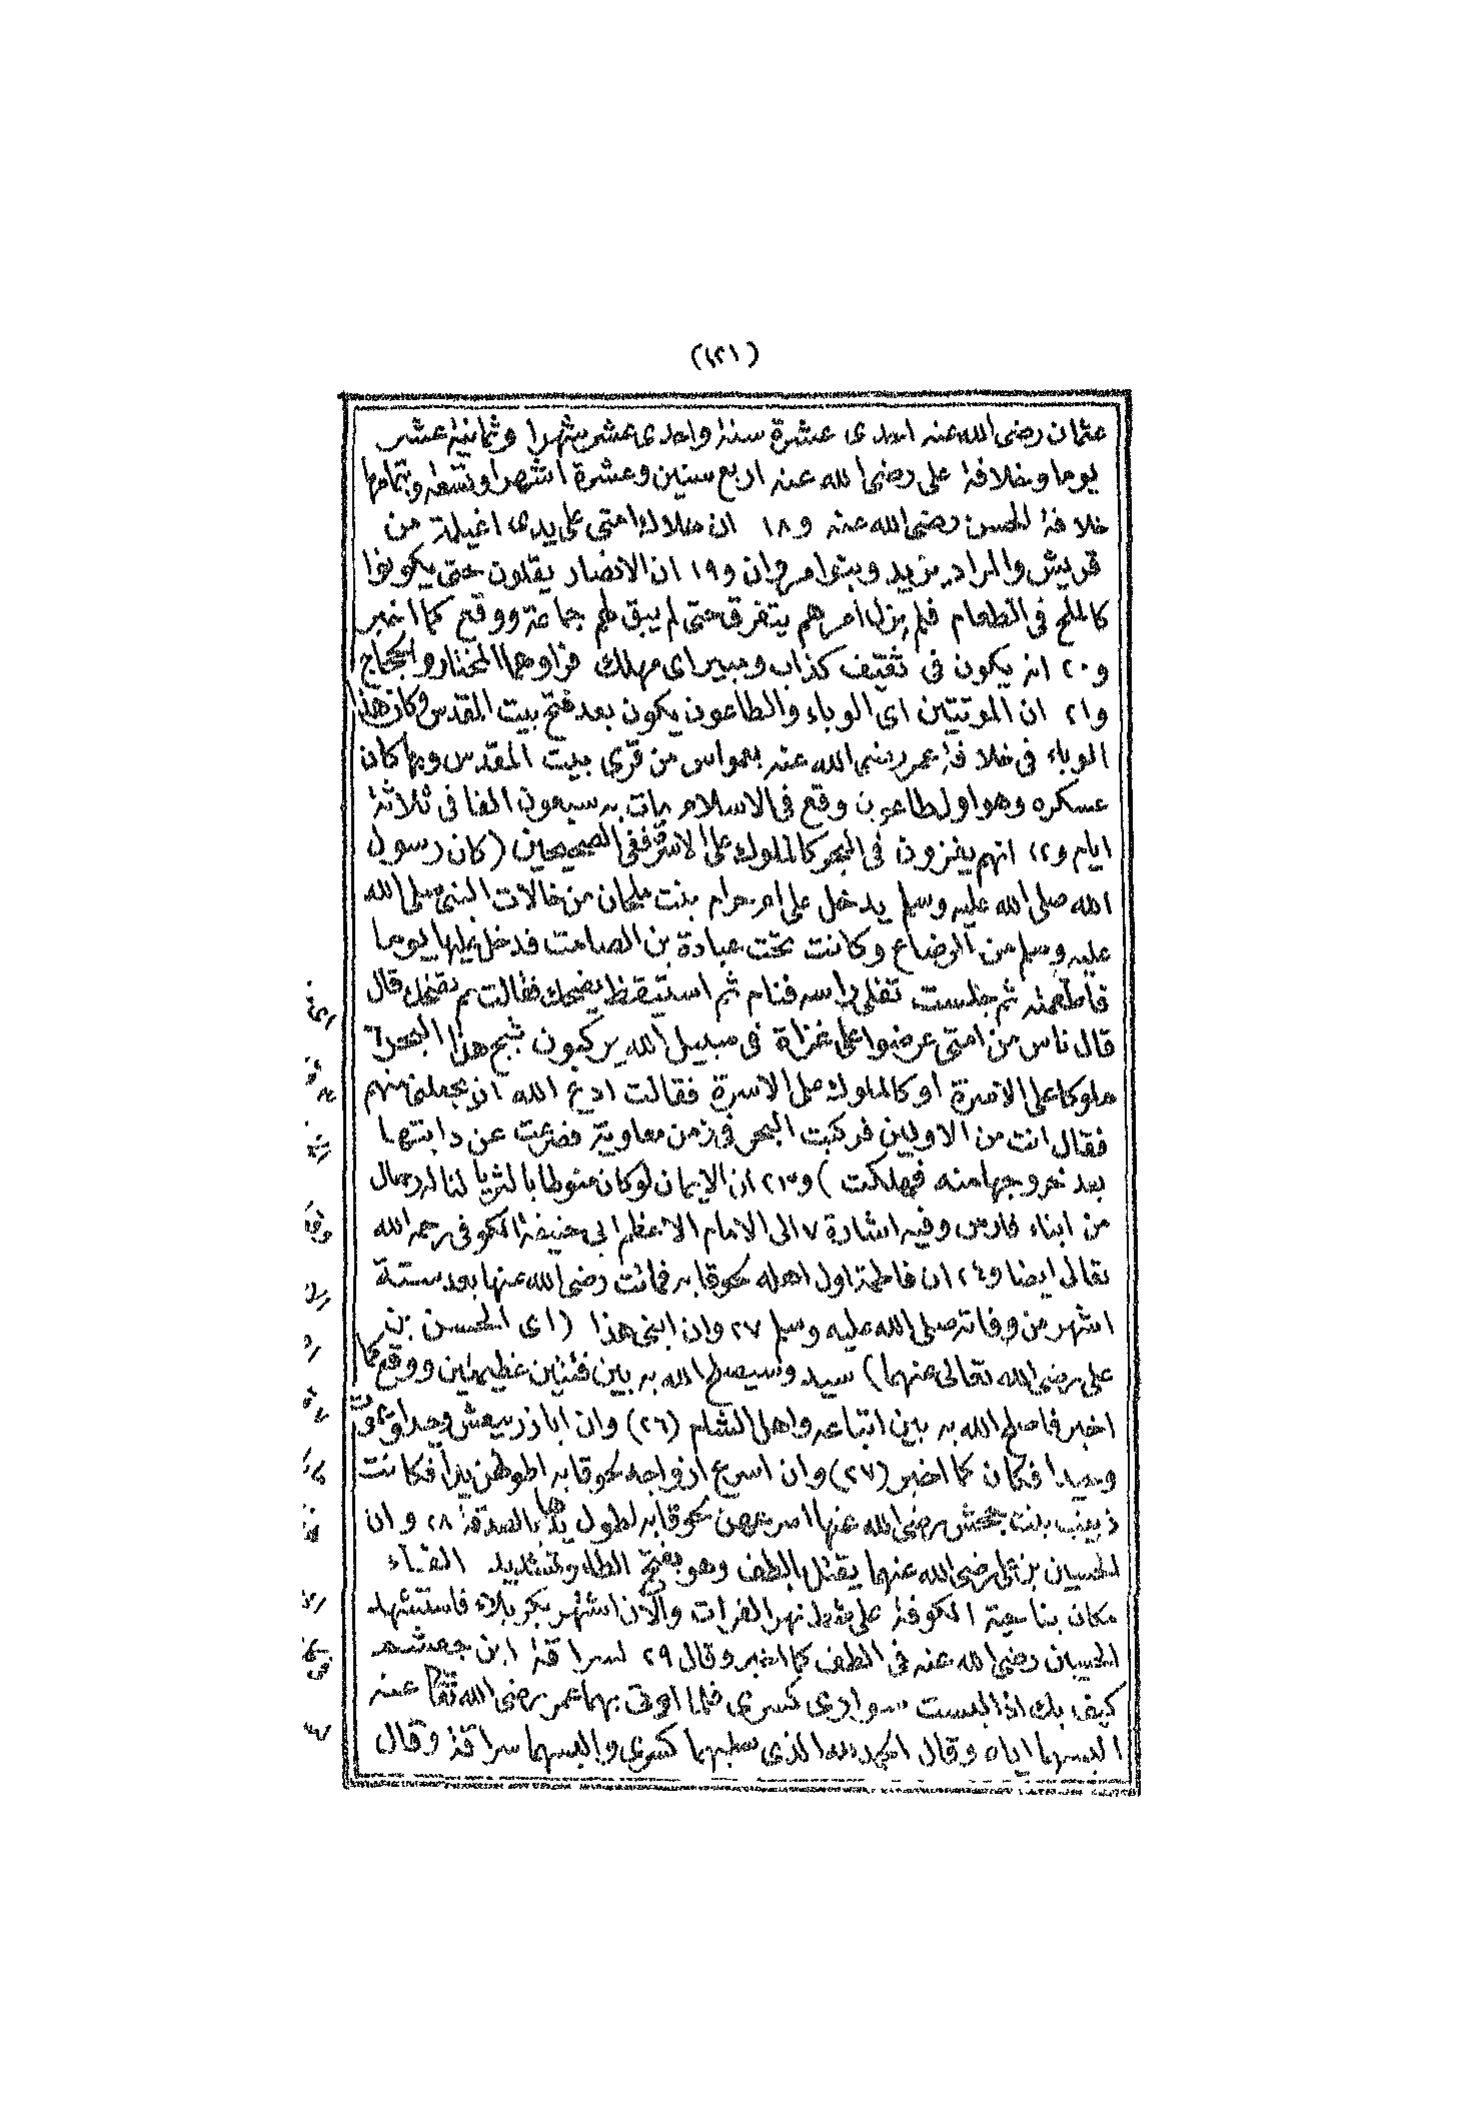 (١٢١)
عثمان رضى الله عنه احدى عشرة سنة واحدى عشر شهرا وثمانية عشر
يوما وخلافة على رضى الله عنه اربع سنين وعشرة اشهر او تسعة وبتمامها
خلافة الحسن رضى الله عنه و١٨ ان هلاك امتى على يدى اغيلمة من
قريش والمراد يزيد وبنوا مروان و١٩ ان الانصار يقلون حتى يكونوا
كالملح فى الطعام فلم يزل امرهم يتفرق حتى لم يبق لهم جماعة ووقع كما اخبر
و٢٠ انه يكون فى ثقيف كذاب ومبير اى مهلك فراوهما المختار والحجاج
و٢١ ان الموتتين اى الوباء والطاعون يكون بعد فتح بيت المقدس وكان هذا
الوباء فى خلافة عمر رضى الله عنه بعمواس من قرى بيت المقدس وبها كان
عسكره وهو اول طاعون وقع فى الاسلام مات به سبعون الفا فى ثلاثة
ايام و٢٢ انهم يغزون فى البحر كالملوك على الاسرة ففى الصحيحين (كان رسول
الله صلى الله عليه وسلم يدخل على ام حرام بنت ملحان من خالات النبى صلى الله
عليه وسلم من الرضاع وكانت تحت عبادة بن الصامت فدخل عليها يوما
فاطعمته ثم جلست تفلى راسه فنام ثم استيقظ يضحك فقالت مم تضحك قال
قال ناس من امتى عرضوا على غزاة فى سبيل الله يركبون ثبج هذا البحر
ملوكا على الاسرة او كالملوك على الاسرة فقالت ادع الله ان يجعلنى منهم
فقال انت من الاولين فركبت البحر فى زمن معاوية فصرعت عن دابتها
بعد خروجها منه فهلكت) و٢٣ ان الايمان لو كان منوطا بالثريا لناله رجال
من ابناء فارس وفيه اشارة ٧ الى الامام الاعظم ابى حنيفة الكوفى رحمه الله
تعالى ايضا و٢٤ ان فاطمة اول اهله لحوقا به فماتت رضى الله عنها بعد ستة
اشهر من وفاته صلى الله عليه وسلم ٢٧ وان ابنى هذا (اى الحسن بن
على رضى الله تعالى عنهما) سيد وسيصلح الله به بين فئتين عظيمتين ووقع كما
اخبر فاصلح الله به بين اتباعه واهل الشام (٢٦) وان اباذر يعيش وحيدا ويموت
وحيدا فكان كما اخبر (٢٧) وان اسرع ازواجه لحوقا به اطولهن يدا فكانت
زينب بنت جحش رضى الله عنها اسرعهن لحوقا به لطول يدها بالصدقة ٢٨ وان
الحسين بن على رضى الله عنهما يقتل بالطف وهو بفتح الطاء وتشديد الفاء
مكان بناحية الكوفة على شط نهر الفرات والآن اشتهر بكربلاء فاستشهد
الحسين رضى الله عنه فى الطف كما اخبر وقال ٢٩ لسراقة ابن جعشم
كيف بك اذا البست سوارى كسرى فلما اوتى بهما عمر رضى الله تعالى عنه
البسهما اياه وقال الحمد لله الذى سلبهما كسرى والبسهما سراقة وقال